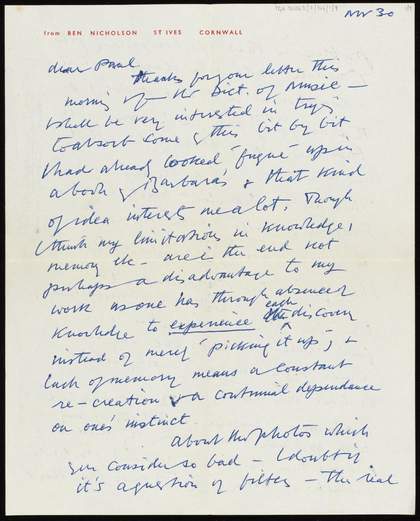 Nov 30
from BEN NICHOLSON ST IVES CORNWALL
dear Paul
thanks for your letter this
morning & for the Dict. of Music –
I shall be very interested in trying
to absorb some of this bit by bit
I had already looked 'fugue' up in
a book of Barbara's & that kind
of idea interests me a lot, Though
I think my limitations in knowledge,
memory etc – are in the end not
perhaps a disadvantage to my
work as one has through absence of
knowledge to experience each discovery
instead of merely 'picking it up', &
lack of memory means a constant
re-creation & a continual dependance
on one's instinct
About the photos which
you consider so bad – I doubt if
it's a question of filters – The real